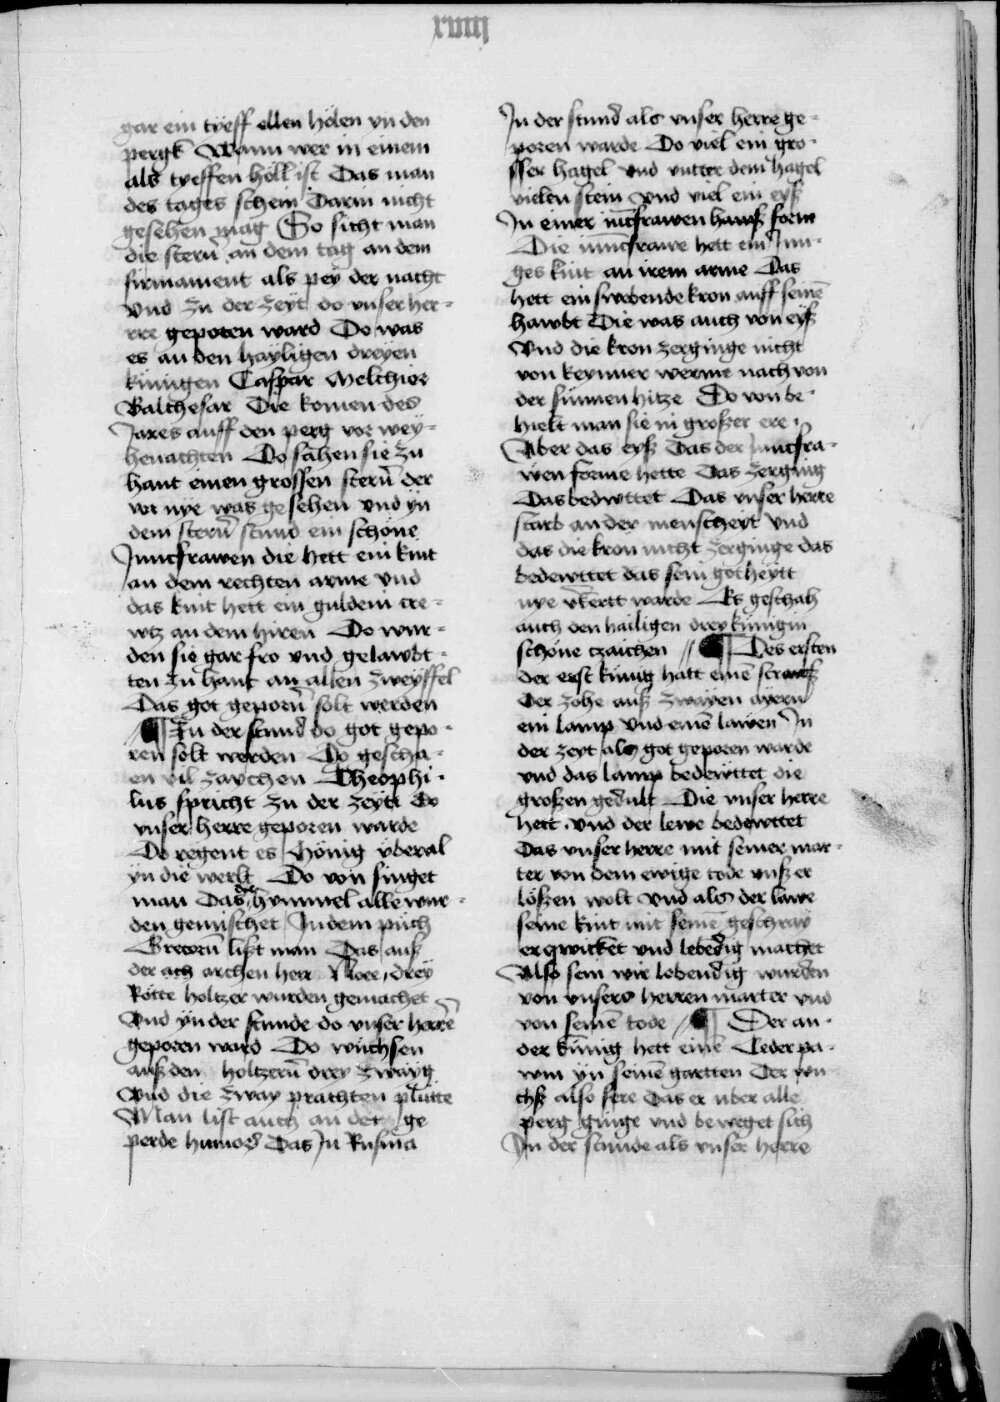 xviij
gar ein tyeff ellen hölen vn den
pergk Wann wer in einem
als tyeffen holl ist Das man
des tages schein Darin nicht
gesehen mag So sicht man
die stern̄ an dem tag an dem
firmament als pey der nacht
Vnd zu der zeyt do vnser her-
rre geporen ward Do was
es an den hayligen dreyen
künigen Caspar Melchior
Balthesar Die komen des
Jares auff den perg vor wey-
henachten Do sahen sie zu
hant einen grossen stern̄ der
vor nye was gesehen vnd yn
dem stern̄ stund ein schöne
Junckfrawen die hett ein kint
an dem rechten arme vnd
das kint hett ein guldein cre-
wtz an dem hiren Do wur-
den sie gar fro vnd gelawbt-
ten zu hant an allen zweyffel
Das got geporn̄ solt werden
¶ In der stund do got gepo-
ren solt werden Do gescha-
en vil zaychen Theophi-
lus spricht zu der zeytt do
vnser herre geporen warde
Do regent es Hönig vberal
yn die werlt Do von singet
man Das die hymmel alle wur-
den gemischet In dem puch
list man Das auß
der ach archen herr Noee drey
Rotte holtzer wurden gemachet
Vnd yn der stunde do vnser herrē
geporen ward Do wuchsen
auß den holtzern̄ drey zwayg
Vnd die zway prachten plutte
Man list auch an der ge
perde Das In Rusma
In der stund als vnser herre ge-
poren warde Do viel ein gro-
sser hagel vnd vntter dem hagel
vielen stein vnd viel ein eyß
In einer iunckfrawen hawß form
Die iunckfrawe hett ein Jun-
ges kint an irem arme Das
hett ein swebende kron auff seinē
hawbt Die was auch von eyß
Vnd die kron zerginge nicht
von keynner werme nach von
der sunnen hitze Do von be-
hielt man sie in großer ere
Aber das eyß Das der Junckfra-
wen forme hette Das zerging
Das bedewttet Das vnser herre
starb an der menscheyt vnd
das die kron nicht zerginge das
bedewttet das sein gotheytt
nye v̄kertt warde Es geschah
auch den hailigen drey künigin
schöne czaichen // ¶ Des ersten
der erst künig hatt einē strauß
Der zohe auß zwayen ayern
ein lamp vnd einē lawen In
der zeyt als got geporen warde
vnd das lamp bedewttet die
großen gedult Die vnser herre
hett. vnd der lewe bedewttet
Das vnser herre mit seiner mar-
ter von dem ewige tode vnß er
lößen wolt Vnd als der lawe
seine kint mit seinē geschray
erqwicket vnd lebedig machet
Also sein wir lebendig wurden
von vnsers herren marter vnd
von seinē tode / ¶ Der an-
der künig hett einē Ceder pa-
wm yn seinē gartten Der wu
chß also sere Das er vber alle
perg ginge vnd beweget sich
In der stunde als vnser herre